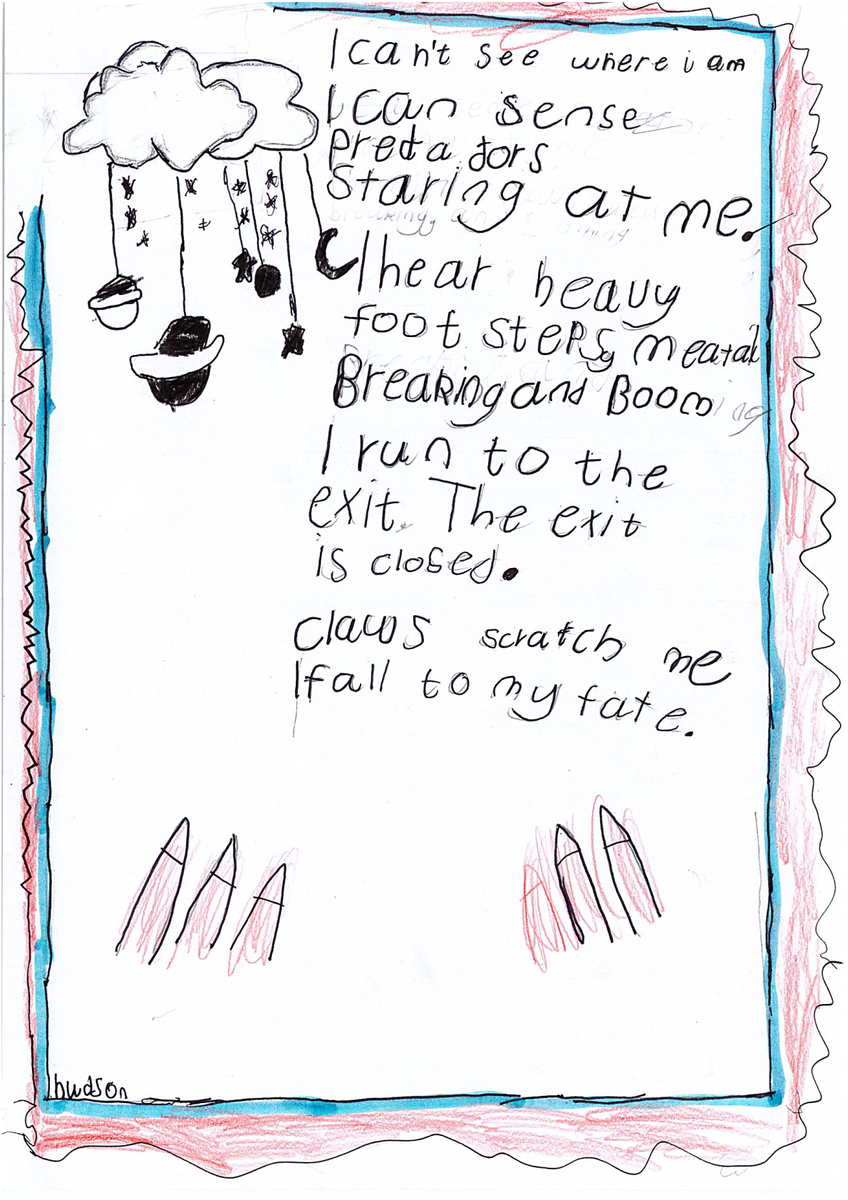 I can't see where i am
I can sense
predators
staring at me.
I hear heavy
foot steps, meatal
Breaking and Booming
I run to the
exit. The exit
is closed.
Claws scratch me
I fall to my fate.
hudson